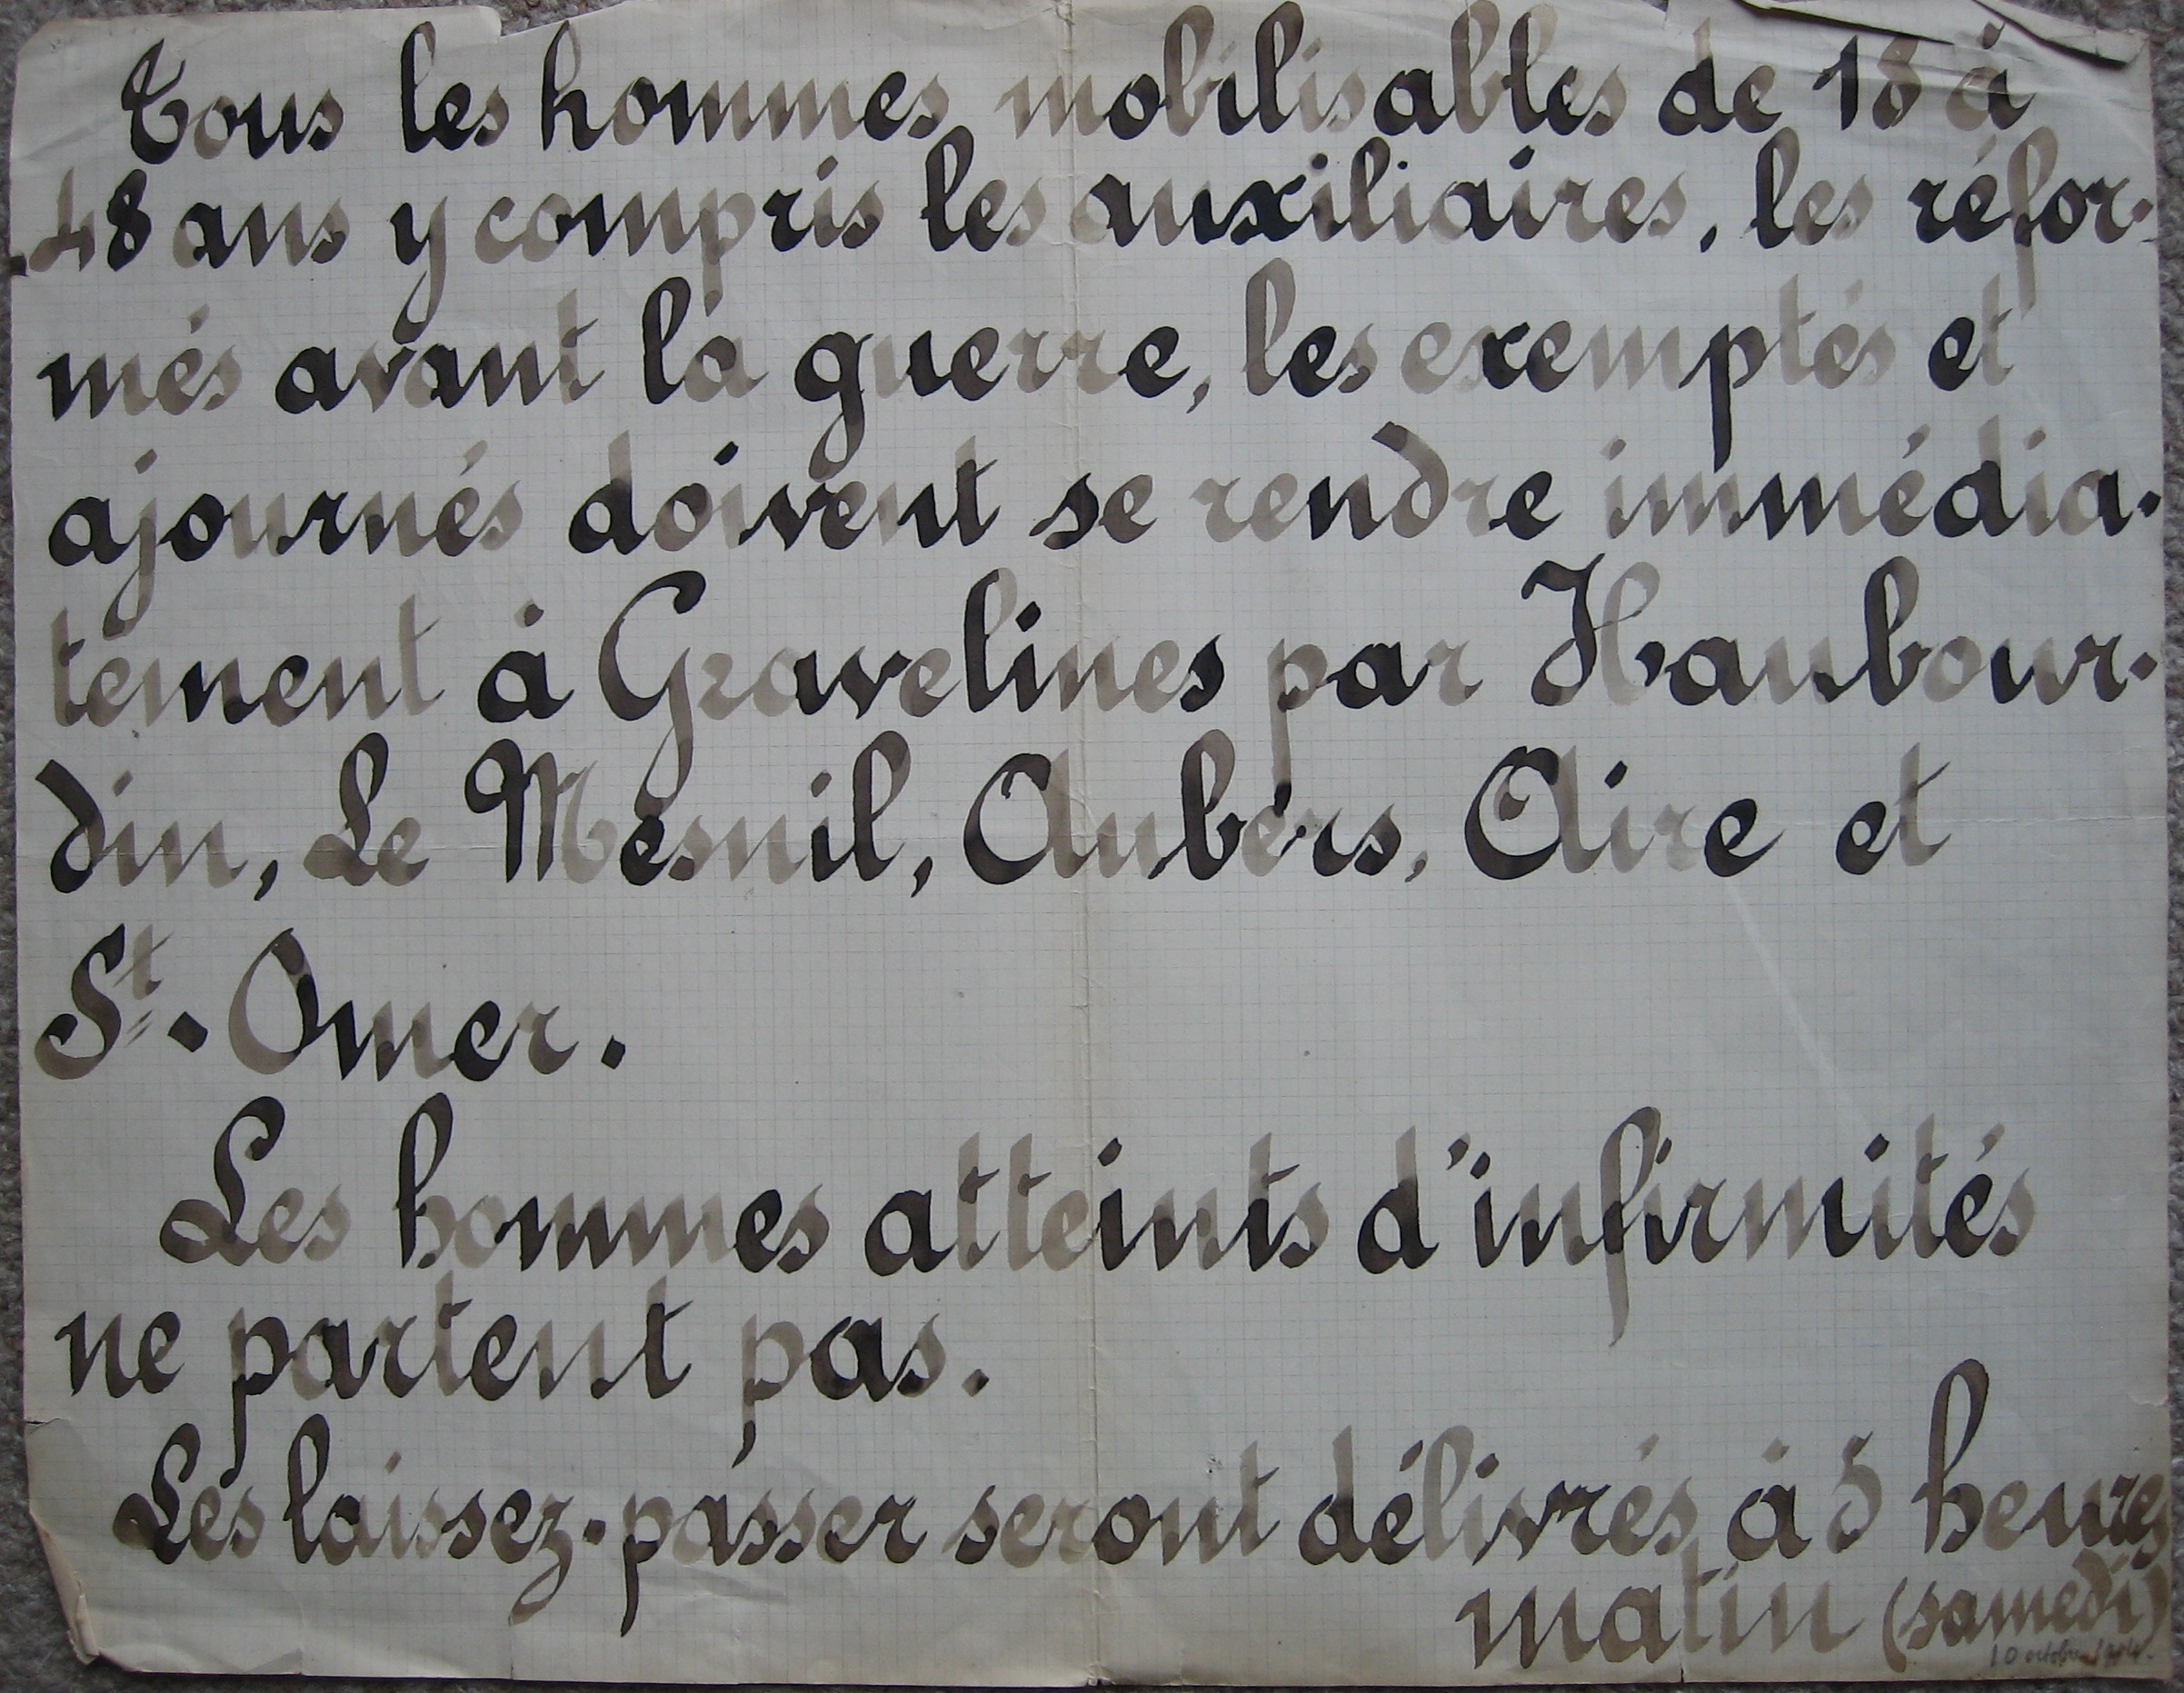 Tous les hommes mobilisables de 18 à
48 ans y compris les auxiliaires, les réfor-
més avant la guerre, les exemptés et
ajournés doivent se rendre immédia-
tement à Gravelines par Haubour-
din, Le Mesnil, Aubers, Aire et
St. Omer.
Les hommes atteints d'infirmités
ne partent pas.
Les laissez-passer seront délivrés à 5 heures
matin (samedi)
10 octobre 1914.